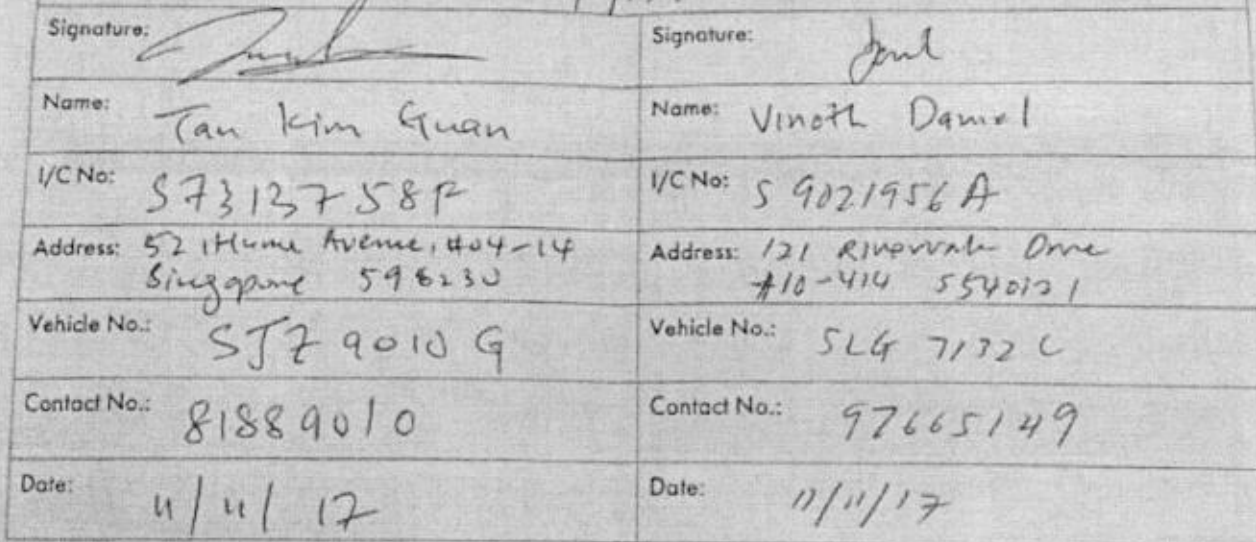 Signature: Signature:
Name: Tan Kim Guan Name: Vinoth Daniel
I/C No: S7313758F I/C No: S 9021956 A
Address: 52 Hume Avenue, #04-14 Address: 121 Rivervale Drive
Singapore 598230 #10-414 S540121
Vehicle No.: SJZ 9010 G Vehicle No.: SLG 7132 C
Contact No.: 81889010 Contact No.: 97665149
Date: 11/11/17 Date: 11/11/17